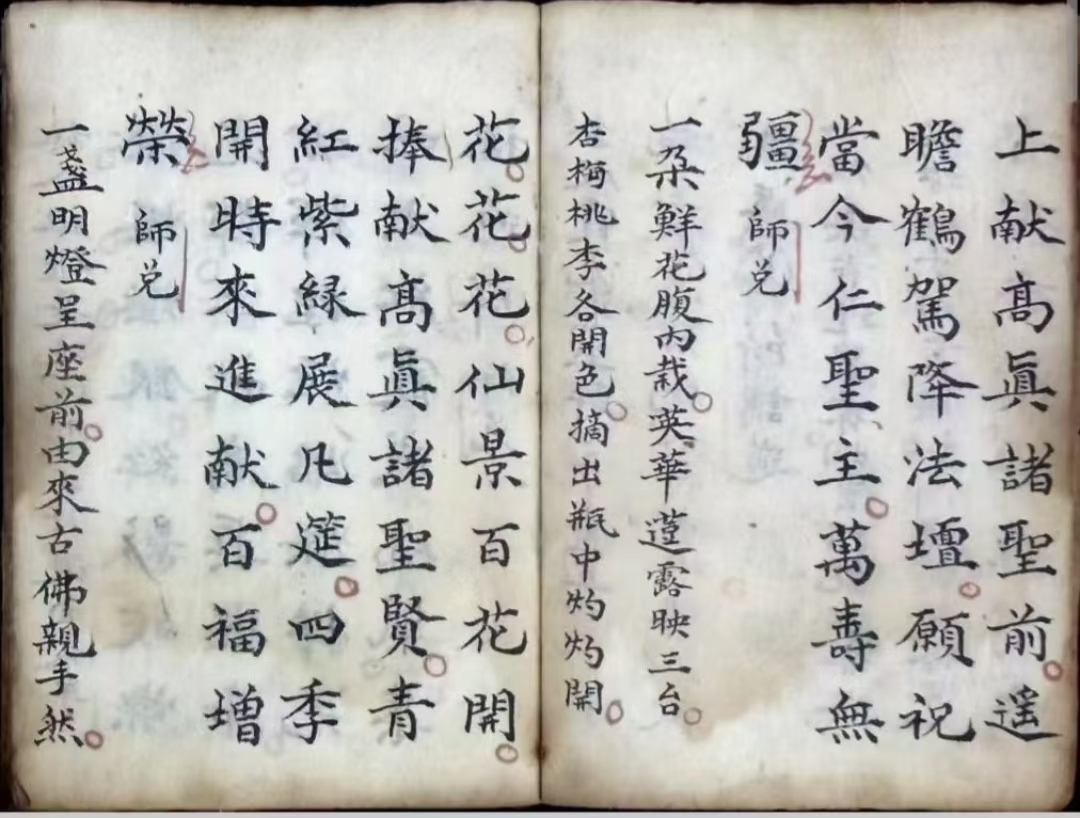 上献高眞諸聖前遥
瞻鶴駕降法壇願祝
當今仁聖主萬壽無
疆 師兑
一朶鮮花腹內栽英華蓬露映三台
杏梅桃李各開色摘出瓶中灼灼開
花花花仙景百花開
捧献高眞諸聖賢青
紅紫緑展凡筵四季
開時來進献百福增
榮 師兑
一盞明燈呈座前由來古佛親手然